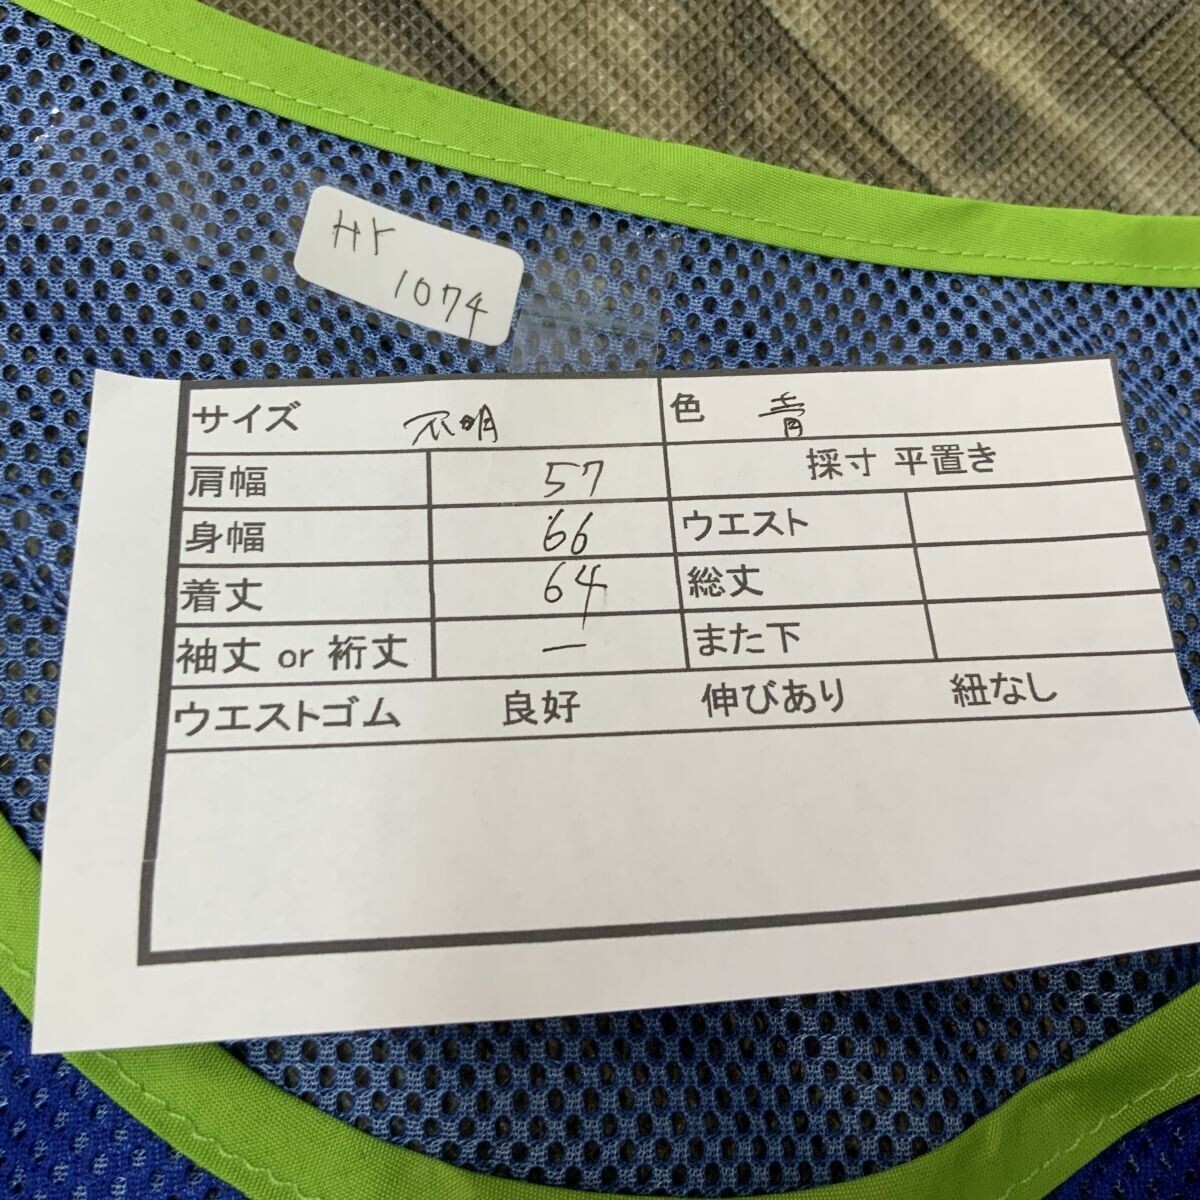 HY
1074
サイズ 不明 色 青
肩幅 57 採寸 平置き
身幅 66 ウエスト
着丈 64 総丈
袖丈 or 裄丈 ー また下
ウエストゴム 良好 伸びあり 紐なし